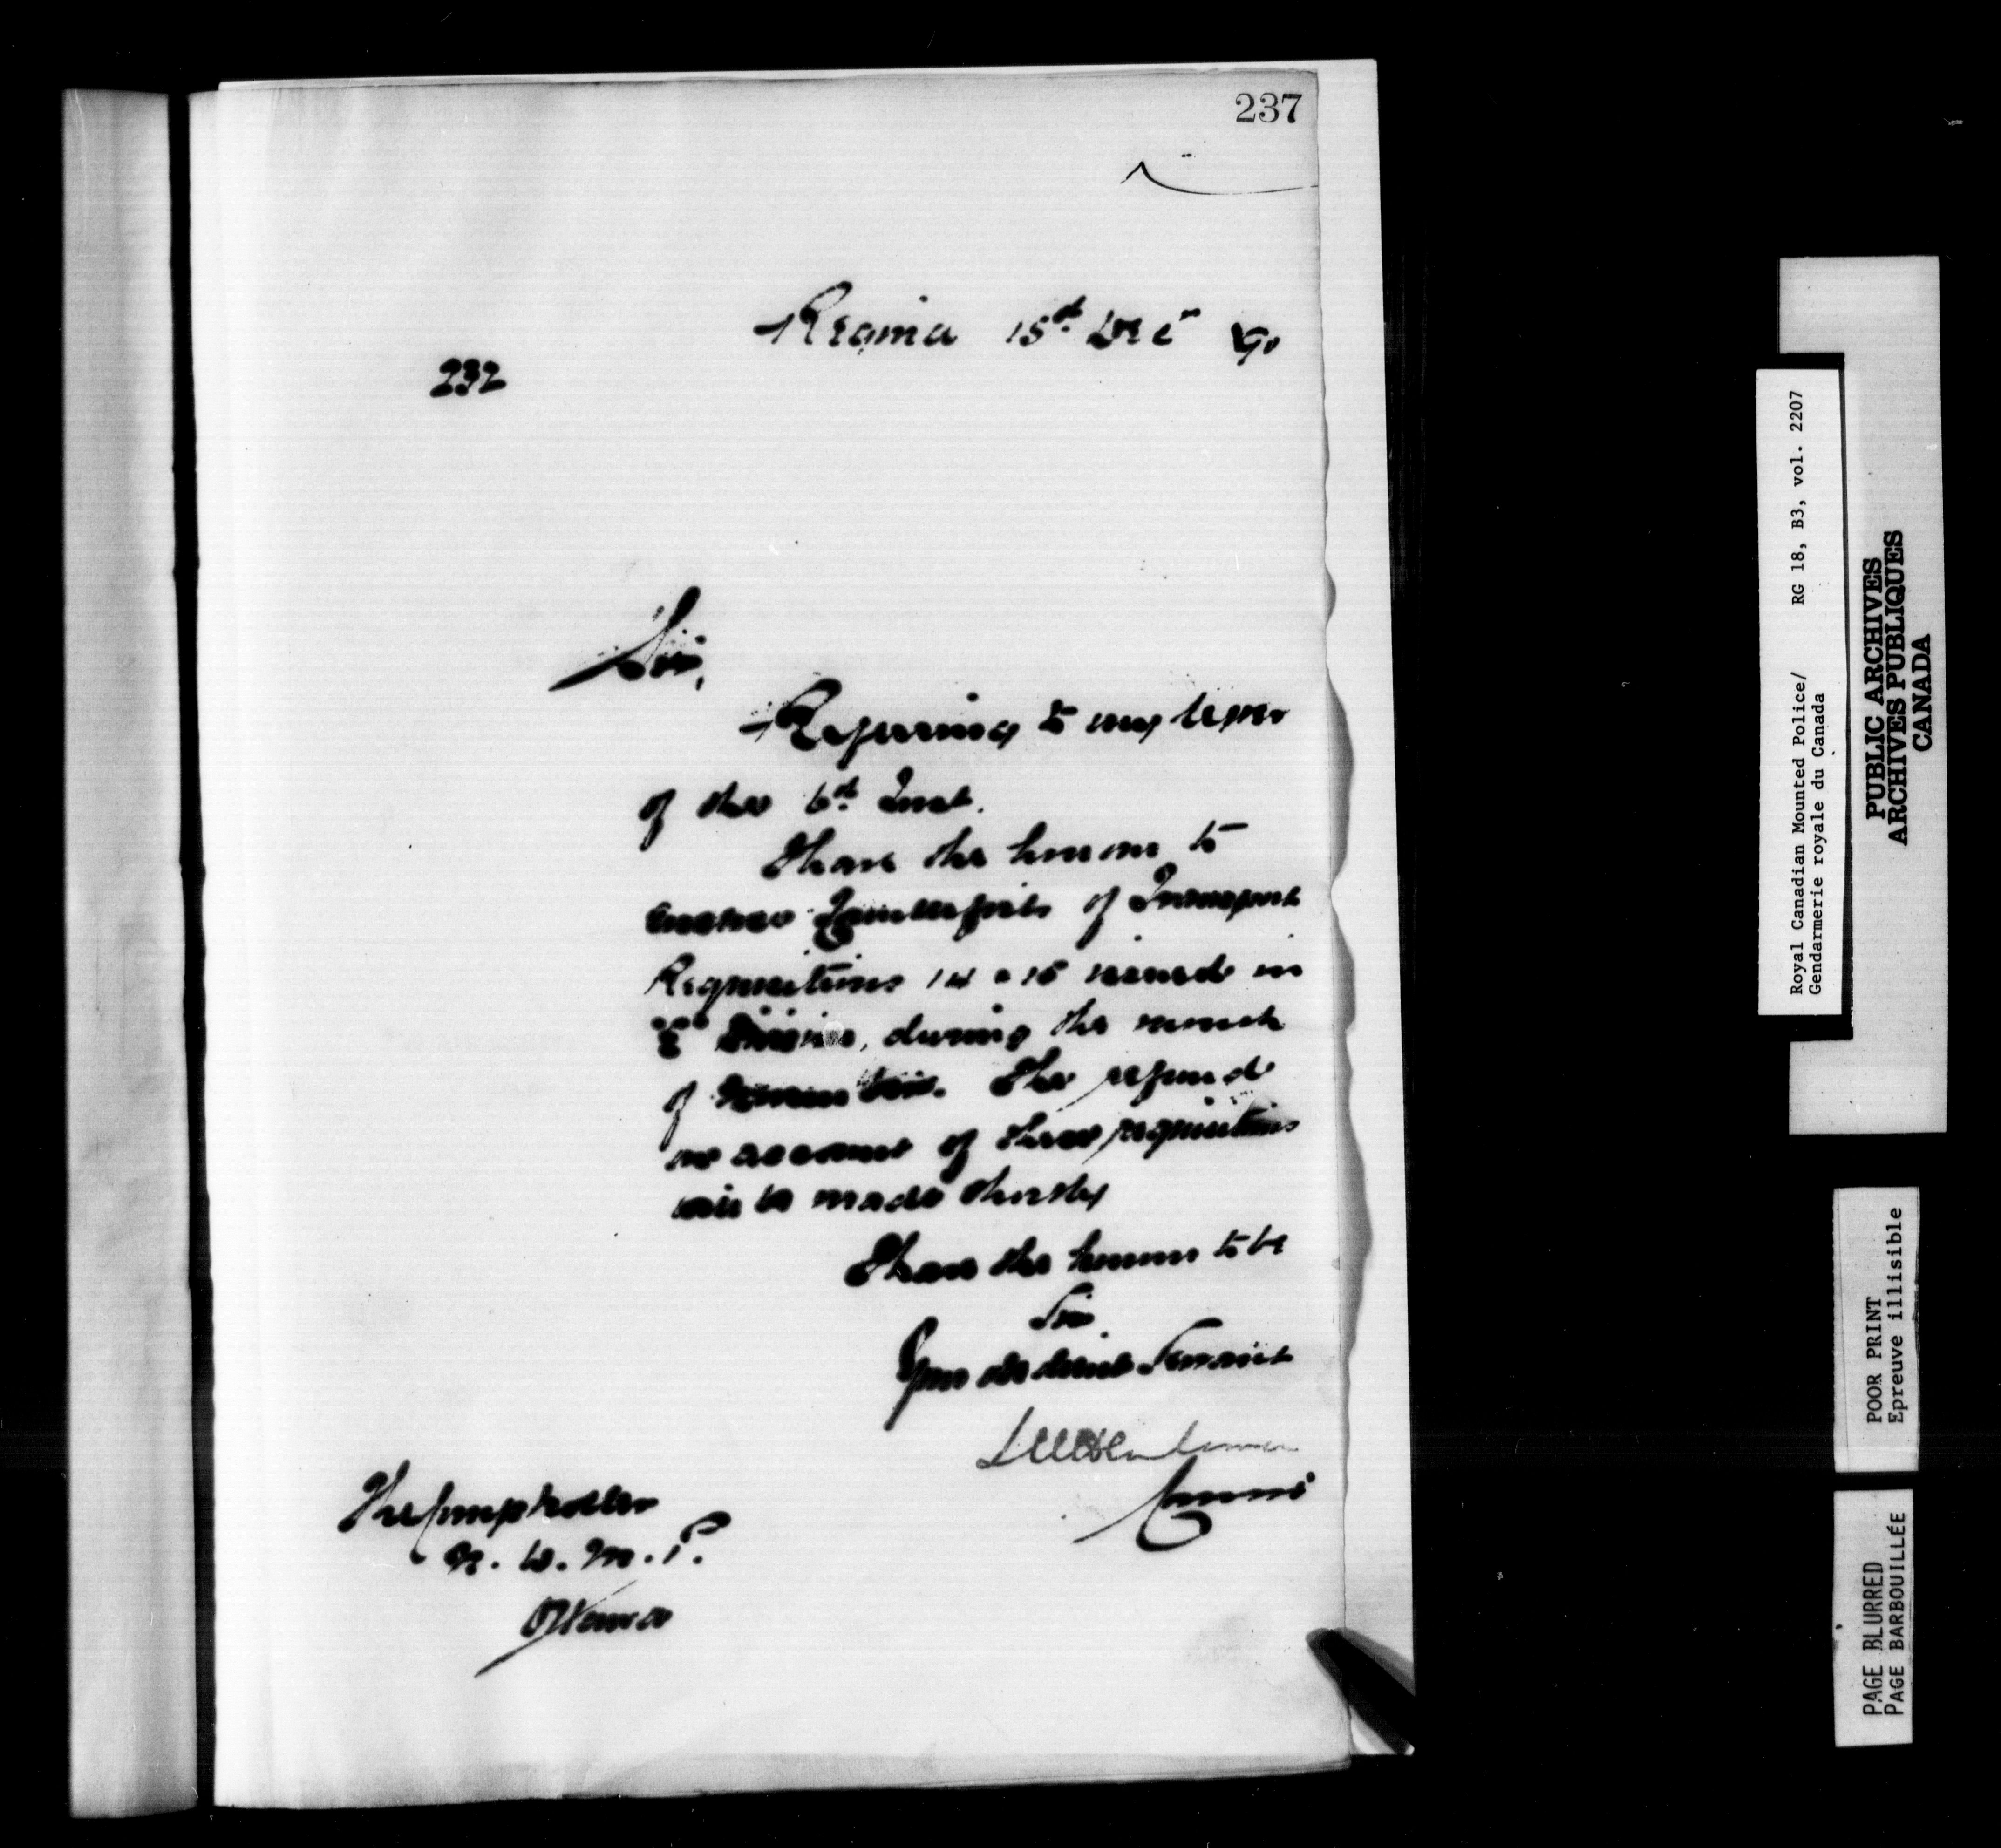 237
Regina 15th Dec 90
232
Sir,
Referring to my letter
of the 6th Inst.
I have the honour to
enclose Counterfoils of Transport
Requisitions 14 & 15 issued in
Division, during the month
of November. The refund
on account of these requisitions
will be made shortly
I have the honour to be
Sir
Your obedient Servant
Commr
The Comptroller
N. W. M. P.
Ottawa
Royal Canadian Mounted Police/ RG 18, B3, vol. 2207
Gendarmerie royale du Canada
PUBLIC ARCHIVES
ARCHIVES PUBLIQUES
CANADA
POOR PRINT
Epreuve illisible
PAGE BLURRED
PAGE BARBOUILLÉE